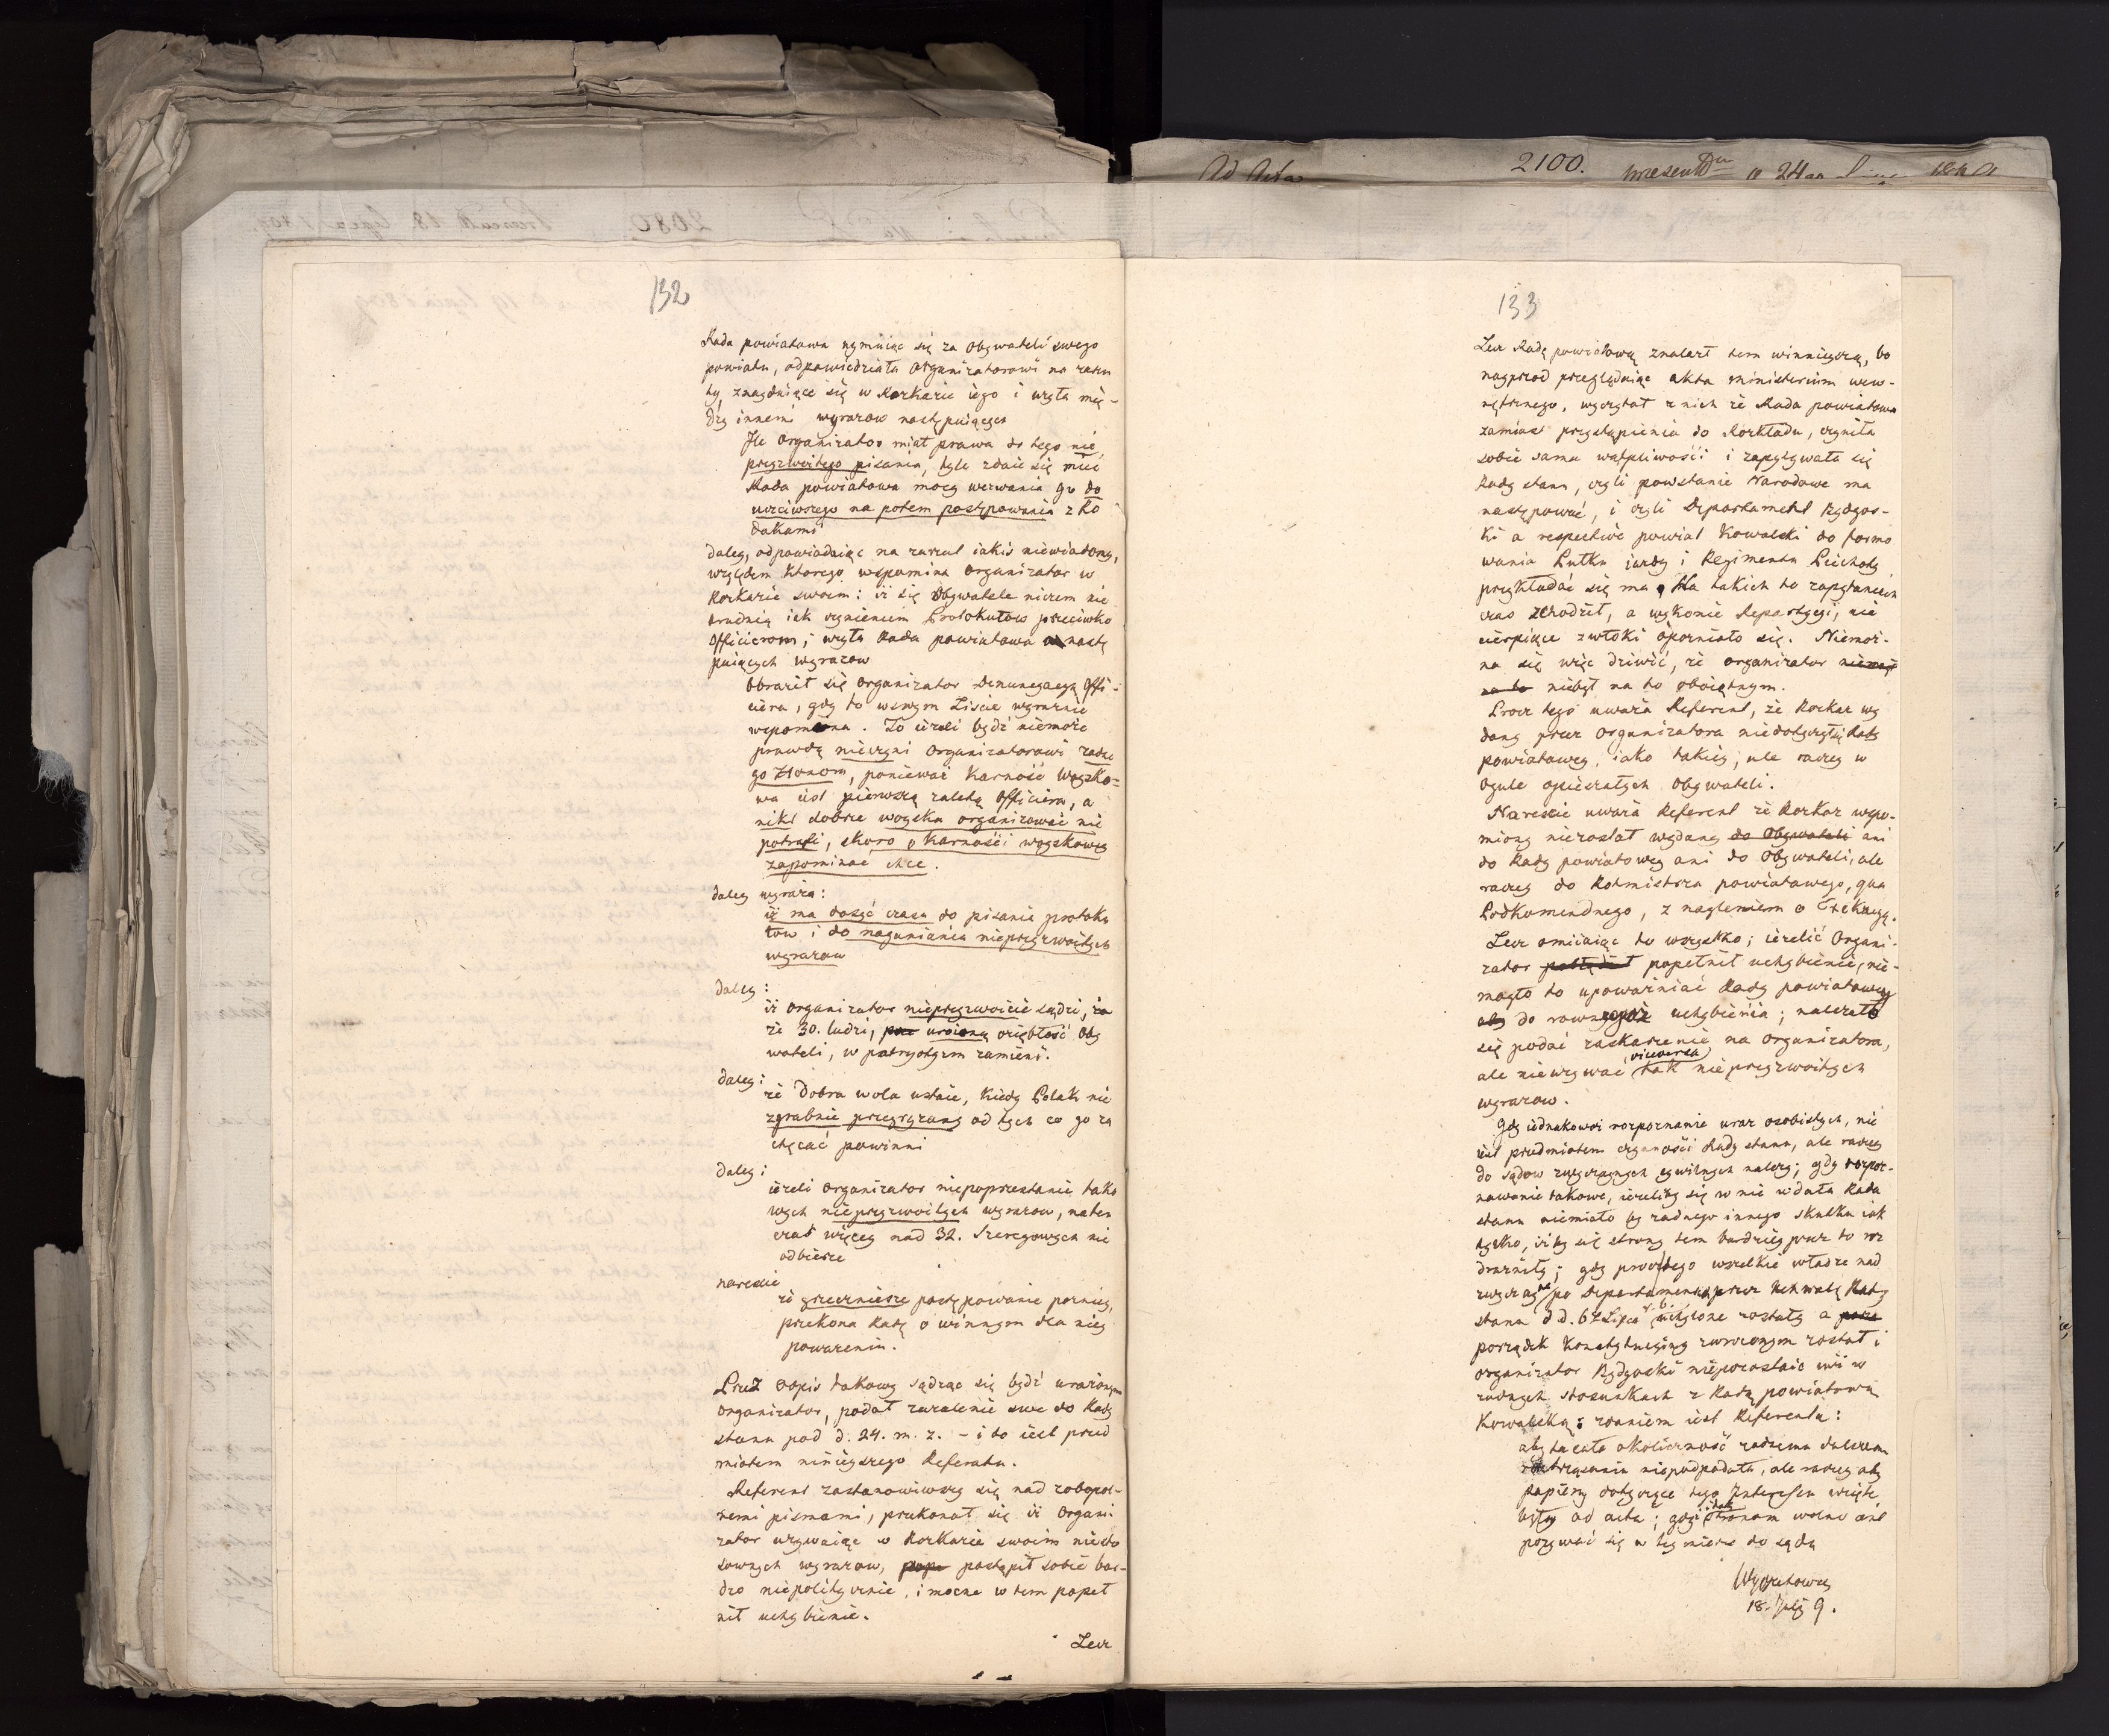 Ad Acta 2100.
132
Rada powiatowa uymuiąc się za Obywateli swego
powiatu, odpowiedziała Organizatorowi na zarzu
ty, znayduiące się w Rozkazie iego i użyła mię-
dzy innemi wyrazow następuiących
Ile Organizator miał prawa do tego nie
przyzwoitego pisania, tyle zdaie się mieć
Rada powiatowa mocy wezwania go do
uczciwszego na potem postępowania z Ro
dakami
daley, odpowiadaiąc na zarzut iakiś niewiadomy,
względem ktorego wspomina Organizator w
Rozkazie swoim: iż się Obywatele niczem nie
trudnią iak czynieniem Protokułow przeciwko
Officierom; użyła Rada powiatowa nastę
puiących wyrazow
Obraził się Organizator Denuncyacyą Offi-
ciera, gdy to w swym Liscie wyraznie
wspomina. To ieżeli bydź niemoże
prawdą nieczyni Organizatorowi żadne
go Honoru, ponieważ Karność Woysko-
wa iest pierwszą zaletą Officiera, a
nikt dobrze woyska organizować nie
potrafi, skoro o Karności woyskowey
zapominać chce.
daley wyraża:
iż ma dosyć czasu do pisania protoku
łow i do naganiania nieprzyzwoitych
wyrazow
daley:
iż Organizator nieprzyzwoicie sądzi, za
że 30. ludzi, urojoną oziębłość Oby
wateli, w patryotyzm zamieni.
daley:
że Dobra wola ustaie, kiedy Polak nie
zgrabnie przegryzany od tych co go za
chęcać powinni
daley:
ieżeli Organizator niepoprzestanie tako
wych nieprzyzwoitych wyrazow, naten
czas więcey nad 32. Szeregowych nie
odbierze
nareszcie
że grzecznieysze postępowanie pozniey,
przekona Radę o winnym dla niey
poważeniu.
Przez Odpis takowy sądząc się bydź urażonym
Organizator, podał zażalenie swe do Rady
stanu pod d. 24. m. z. – i to iest przed
miotem ninieyszego Referatu.
Referent zastanowiwszy się nad zobopol-
nemi pismami, przekonał się iż Organi
zator używaiąc w Rozkazie swoim niesto
sownych wyrazow, postąpił sobie bar-
dzo niepolitycznie, i mocne w tem popeł
nił uchybienie.
Lecz
133
Lecz Radę powiatową znalazł tem winnieyszą, bo
nayprzod przeglądaiąc akta ministerium wew-
nętrznego, wyczytał z nich że Rada powiatowa
zamiast przystąpienia do Rozkładu, czyniła
sobie sama wątpliwości i zapytywała się
Rady stanu, czyli powstanie Narodowe ma
następować, i czyli Departament Bydgos-
ki a respective powiat Kowalski do formo
wania Pułku jazdy i Regimentu Piechoty
przykładać się ma. Na takich to zapytaniach
czas zchodził, a wykonie Repartycyi, nie
cierpiące zwłoki opoźniało się. Niemoż-
na się więc dziwić, że organizator
niebył na to oboiętnym.
Procz tego uważa Referent, że Rozkaz wy
dany przez Organizatora niedotyczył się Rady
powiatowey, iako takiey, ale raczey w
ogule opieszałych Obywateli.
Nareszcie uważa Referent że Rozkaz wspo-
miony niezostał wydany do Obywateli ani
do Rady powiatowey ani do Obywateli, ale
raczey do Rotmistrza powiatowego, qua
Podkomendnego, z nagleniem o Exekucyą.
Lecz omiiaiąc to wszystko; ieżelić Organi-
zator popełnił uchybienie, nie-
mogło to upoważniać Rady powiatowey
do uchybienia; należało
się podać zaskarżenie na Organizatora,
ale nieużywać vice versa tak nieprzyzwoitych
wyrazow.
Gdy iednakowoż rozpoznanie uraz osobistych, nie
iest przedmiotem czynności Rady stanu, ale raczey
do sądow zwyczaynych cywilnych należy; gdy rozpoz-
nawanie takowe, ieżeliby się w nie wdała Rada
stanu niemiało by żadnego innego skutku iak
tylko, iżby się strony tem bardziey przez to roz
drażniły; gdy procz tego wszelkie władze nad
zwyczayne po Departamentach przez Uchwałę Rady
stanu d. d. 6 Lipca r. b. uchylone zostały a
porządek Konstytucyiny zwroconym został i
organizator Bydgoski niepozostaie iuż w
żadnych stosunkach z Radą powiatową
Kowalską; zdaniem iest Referenta:
aby ta cała okoliczność żadnemu dalszemu
roztrząsaniu niepodpadała, ale raczey aby
papiery dotyczące tego Interessu wzięte
były ad acta; gdyż stronom wolno iest
pozywać się w tey mierze do sądu
18. July 9.